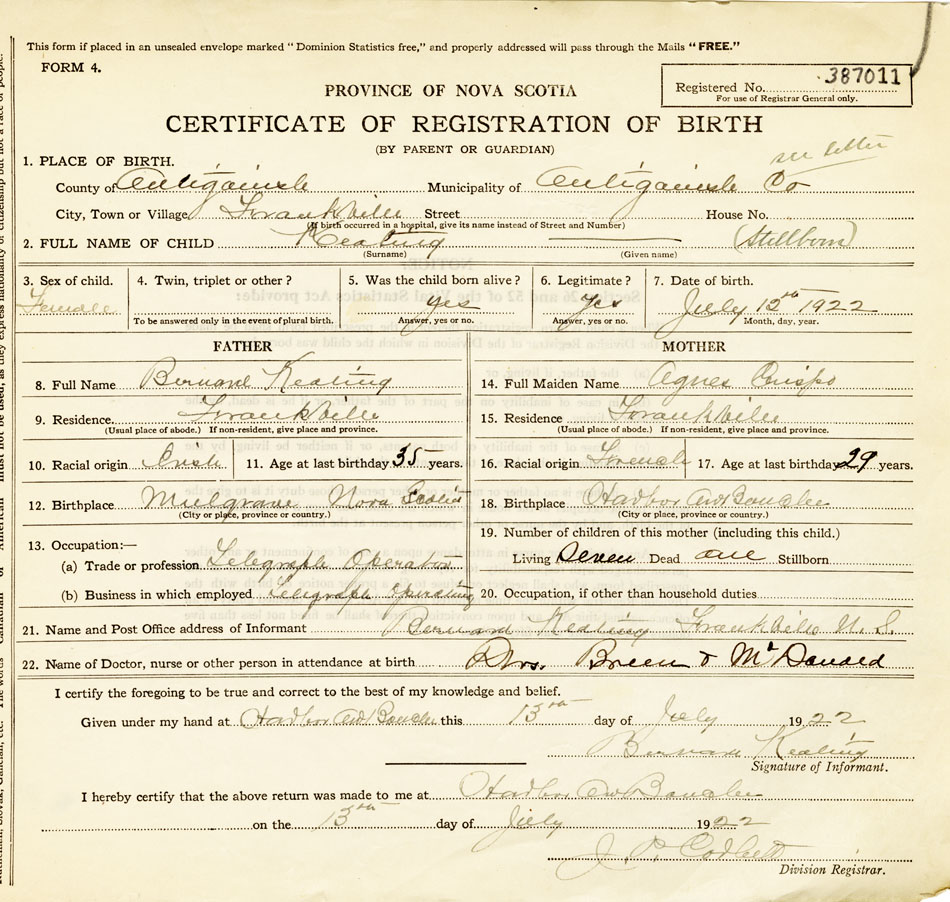 This form if placed in an unsealed envelope marked "Dominion Statistics free," and properly addressed will pass through the Mails "FREE."
FORM 4.
Registered No. 387011
For use of Registrar General only.
PROVINCE OF NOVA SCOTIA
CERTIFICATE OF REGISTRATION OF BIRTH
(BY PARENT OR GUARDIAN)
see letter
1. PLACE OF BIRTH.
County of Antigonish Municipality of Antigonish Co
City, Town or Village Frankville Street House No.
(If birth occurred in a hospital, give its name instead of Street and Number)
2. FULL NAME OF CHILD Keating (Stillborn)
(Surname) (Given name)
3. Sex of child. 4. Twin, triplet or other? 5. Was the child born alive? 6. Legitimate? 7. Date of birth.
Female yes Yes July 12th 1922
To be answered only in the event of plural birth. Answer, yes or no. Answer, yes or no. Month, day, year.
FATHER MOTHER
8. Full Name Bernard Keating 14. Full Maiden Name Agnes Crispo
9. Residence Frankville 15. Residence Frankville
(Usual place of abode.) If non-resident, give place and province. (Usual place of abode.) If non-resident, give place and province.
10. Racial origin Irish 11. Age at last birthday 35 years. 16. Racial origin French 17. Age at last birthday 29 years.
12. Birthplace Mulgrave Nova Scotia 18. Birthplace Harbor Au Bouche
(City or place, province or country.) (City or place, province or country.)
13. Occupation:— 19. Number of children of this mother (including this child.)
(a) Trade or profession Telegraph Operator Living Seven Dead one Stillborn
(b) Business in which employed Telegraph Operating 20. Occupation, if other than household duties
21. Name and Post Office address of Informant Bernard Keating Frankville N.S.
22. Name of Doctor, nurse or other person in attendance at birth Drs. Breen & McDonald
I certify the foregoing to be true and correct to the best of my knowledge and belief.
Given under my hand at Harbor Au Bouche this 13th day of July 1922
Bernard Keating
Signature of Informant.
I hereby certify that the above return was made to me at Harbor Au Bouche
on the 13th day of July 1922
J. P. Corbett
Division Registrar.